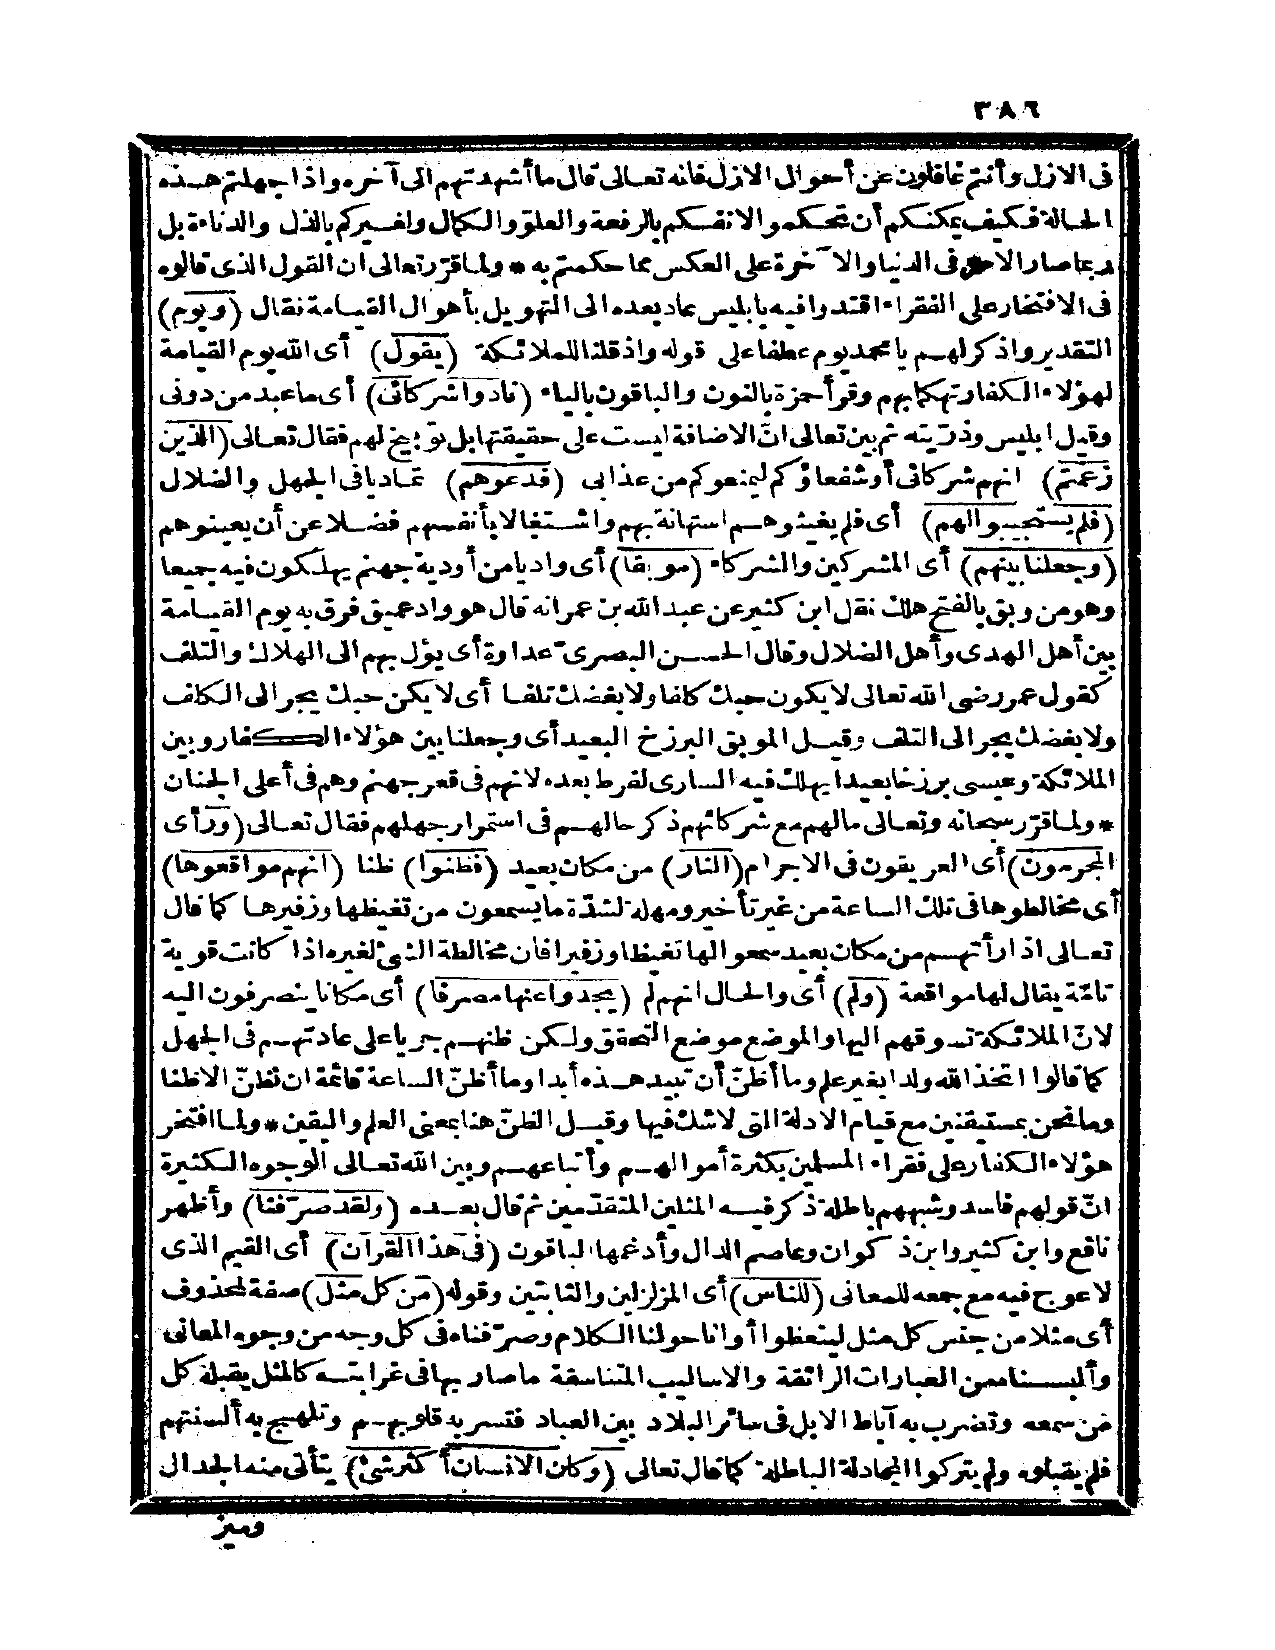 ٣٨٦
فى الازل وأنتم غافلون عن أحوال الازل فانه تعالى قال ما أشهدتهم الى آخره واذا جهلتم هـذه
الحالة فكيف يمكنكم أن تحكموا لانفسكم بالرفعة والعلوّ والكمال ولغيركم بالذل والدناءة بل
ربما صار الامر فى الدنيا والآخرة على العكس مما حكمتم به * ولما قرّر تعالى ان القول الذى قالوه
فى الافتخار على الفقراء اقتدوا فيه بابليس عاد بعده الى التهويل بأهوال القيامة فقال (ويوم)
التقدير واذكر لهم يا محمد يوم عطفا على قوله واذ قلنا للملائكة (يقول) أى الله يوم القيامة
لهؤلاء الكفار تهكما بهم وقرأ حمزة بالنون والباقون بالياء (نادوا شركائى) أى ما عبد من دونى
وقيل ابليس وذرّيته ثم بين تعالى انّ الاضافة ليست على حقيقتها بل توبيخ لهم فقال تعالى (الذين
زعمتم) انهم شركائى أو شفعاؤكم ليمنعوكم من عذابى (فدعوهم) تماديا فى الجهل والضلال
(فلم يستجيبوا لهم) أى فلم يغيثوهـم استهانة بهم واشـتغالا بأنفسهم فضـلا عن أن يعينوهم
(وجعلنا بينهم) أى المشركين والشركاء (موبقا) أى واديا من أودية جهنم يهلكون فيه جميعا
وهو من وبق بالفتح هلك نقل ابن كثير عن عبد الله بن عمر انه قال هو واد عميق فرق به يوم القيامة
بين أهل الهدى وأهل الضلال وقال الحسـن البصرى عداوة أى يؤل بهم الى الهلاك والتلف
كقول عمر رضى الله تعالى لا يكون حبك كلفا ولا بغضك تلفا أى لا يكن حبك يجر الى الكلف
ولا بغضك يجر الى التلف وقيـل الموبق البرزخ البعيد أى وجعلنا بين هؤلاء الكفار وبين
الملائكة وعيسى برزخا بعيدا يهلك فيه السارى لفرط بعده لانهم فى قعر جهنم وهم فى أعلى الجنان
* ولما قرّر سبحانه وتعالى مالهم مع شركائهم ذكر حالهـم فى استمرار جهلهم فقال تعالى (ورأى
المجرمون) أى العريقون فى الاجرام (النار) من مكان بعيد (فظنوا) ظنا (انهم مواقعوها)
أى مخالطوها فى تلك الساعة من غير تأخير ومهلة لشدّة ما يسمعون من تغيظها وزفيرها كما قال
تعـالى اذا رأتهـم من مكان بعيد سمعوا لها تغيظا وزفيرا فان مخالطة الشئ لغيره اذا كانت قوية
تامّة يقال لها مواقعة (ولم) أى والحال انهم لم (يجدوا عنها مصرفا) أى مكانا ينصرفون اليه
لانّ الملائكة تسوقهم اليها والموضع موضع التحقق ولكن ظنهـم جريا على عادتهـم فى الجهل
كما قالوا اتخذ الله ولدا بغير علم وما أظنّ أن تبيد هـذه أبدا وما أظنّ الساعة قائمة ان نظنّ الا ظنا
وما نحن بمستيقنين مع قيام الادلة التى لا شك فيها وقيـل الظنّ هنا بمعنى العلم واليقين * ولما افتخر
هؤلاء الكفار على فقراء المسلمين بكثرة أموالهـم وأتباعهـم وبين الله تعالى الوجوه الكثيرة
انّ قولهم فاسد وشبههم باطلة ذكر فيـه المثلين المتقدّمين ثم قال بعـده (ولقد صرّفنا) وأظهر
نافع وابن كثير وابن ذكوان وعاصم الدال وأدغمها الباقون (فى هذا القرآن) أى القيم الذى
لا عوج فيه مع جمعه للمعانى (للناس) أى المزلزلين والثابتين وقوله (من كل مثل) صفة لمحذوف
أى مثلا من جنس كل مثل ليتعظوا أو انا حولنا الكلام وصرّفناه فى كل وجه من وجوه المعانى
وألبسـناه من العبارات الرائقة والاساليب المتناسقة ما صار بها فى غرابتـه كالمثل يقبله كل
من سمعه وتضرب به آباط الابل فى سائر البلاد بين العباد فتسر به قلوبهـم وتلهج به ألسنتهم
فلم يقبلوه ولم يتركوا المجادلة الباطلة كما قال تعالى (وكان الانسان أكثر شئ) يتأتى منه الجدال
وميز